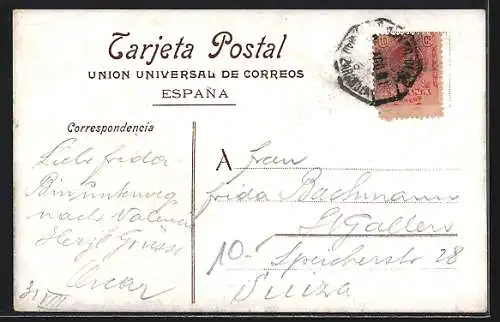 Tarjeta Postal
UNION UNIVERSAL DE CORREOS
ESPAÑA
Correspondencia
Liebe Frida
Bin unterweg
nach Valencia
Herzl Grüsse
Oscar
31 VIII
A Frau
Frida Bachmann
St Gallen
10- Speicherstr 28
Suiza